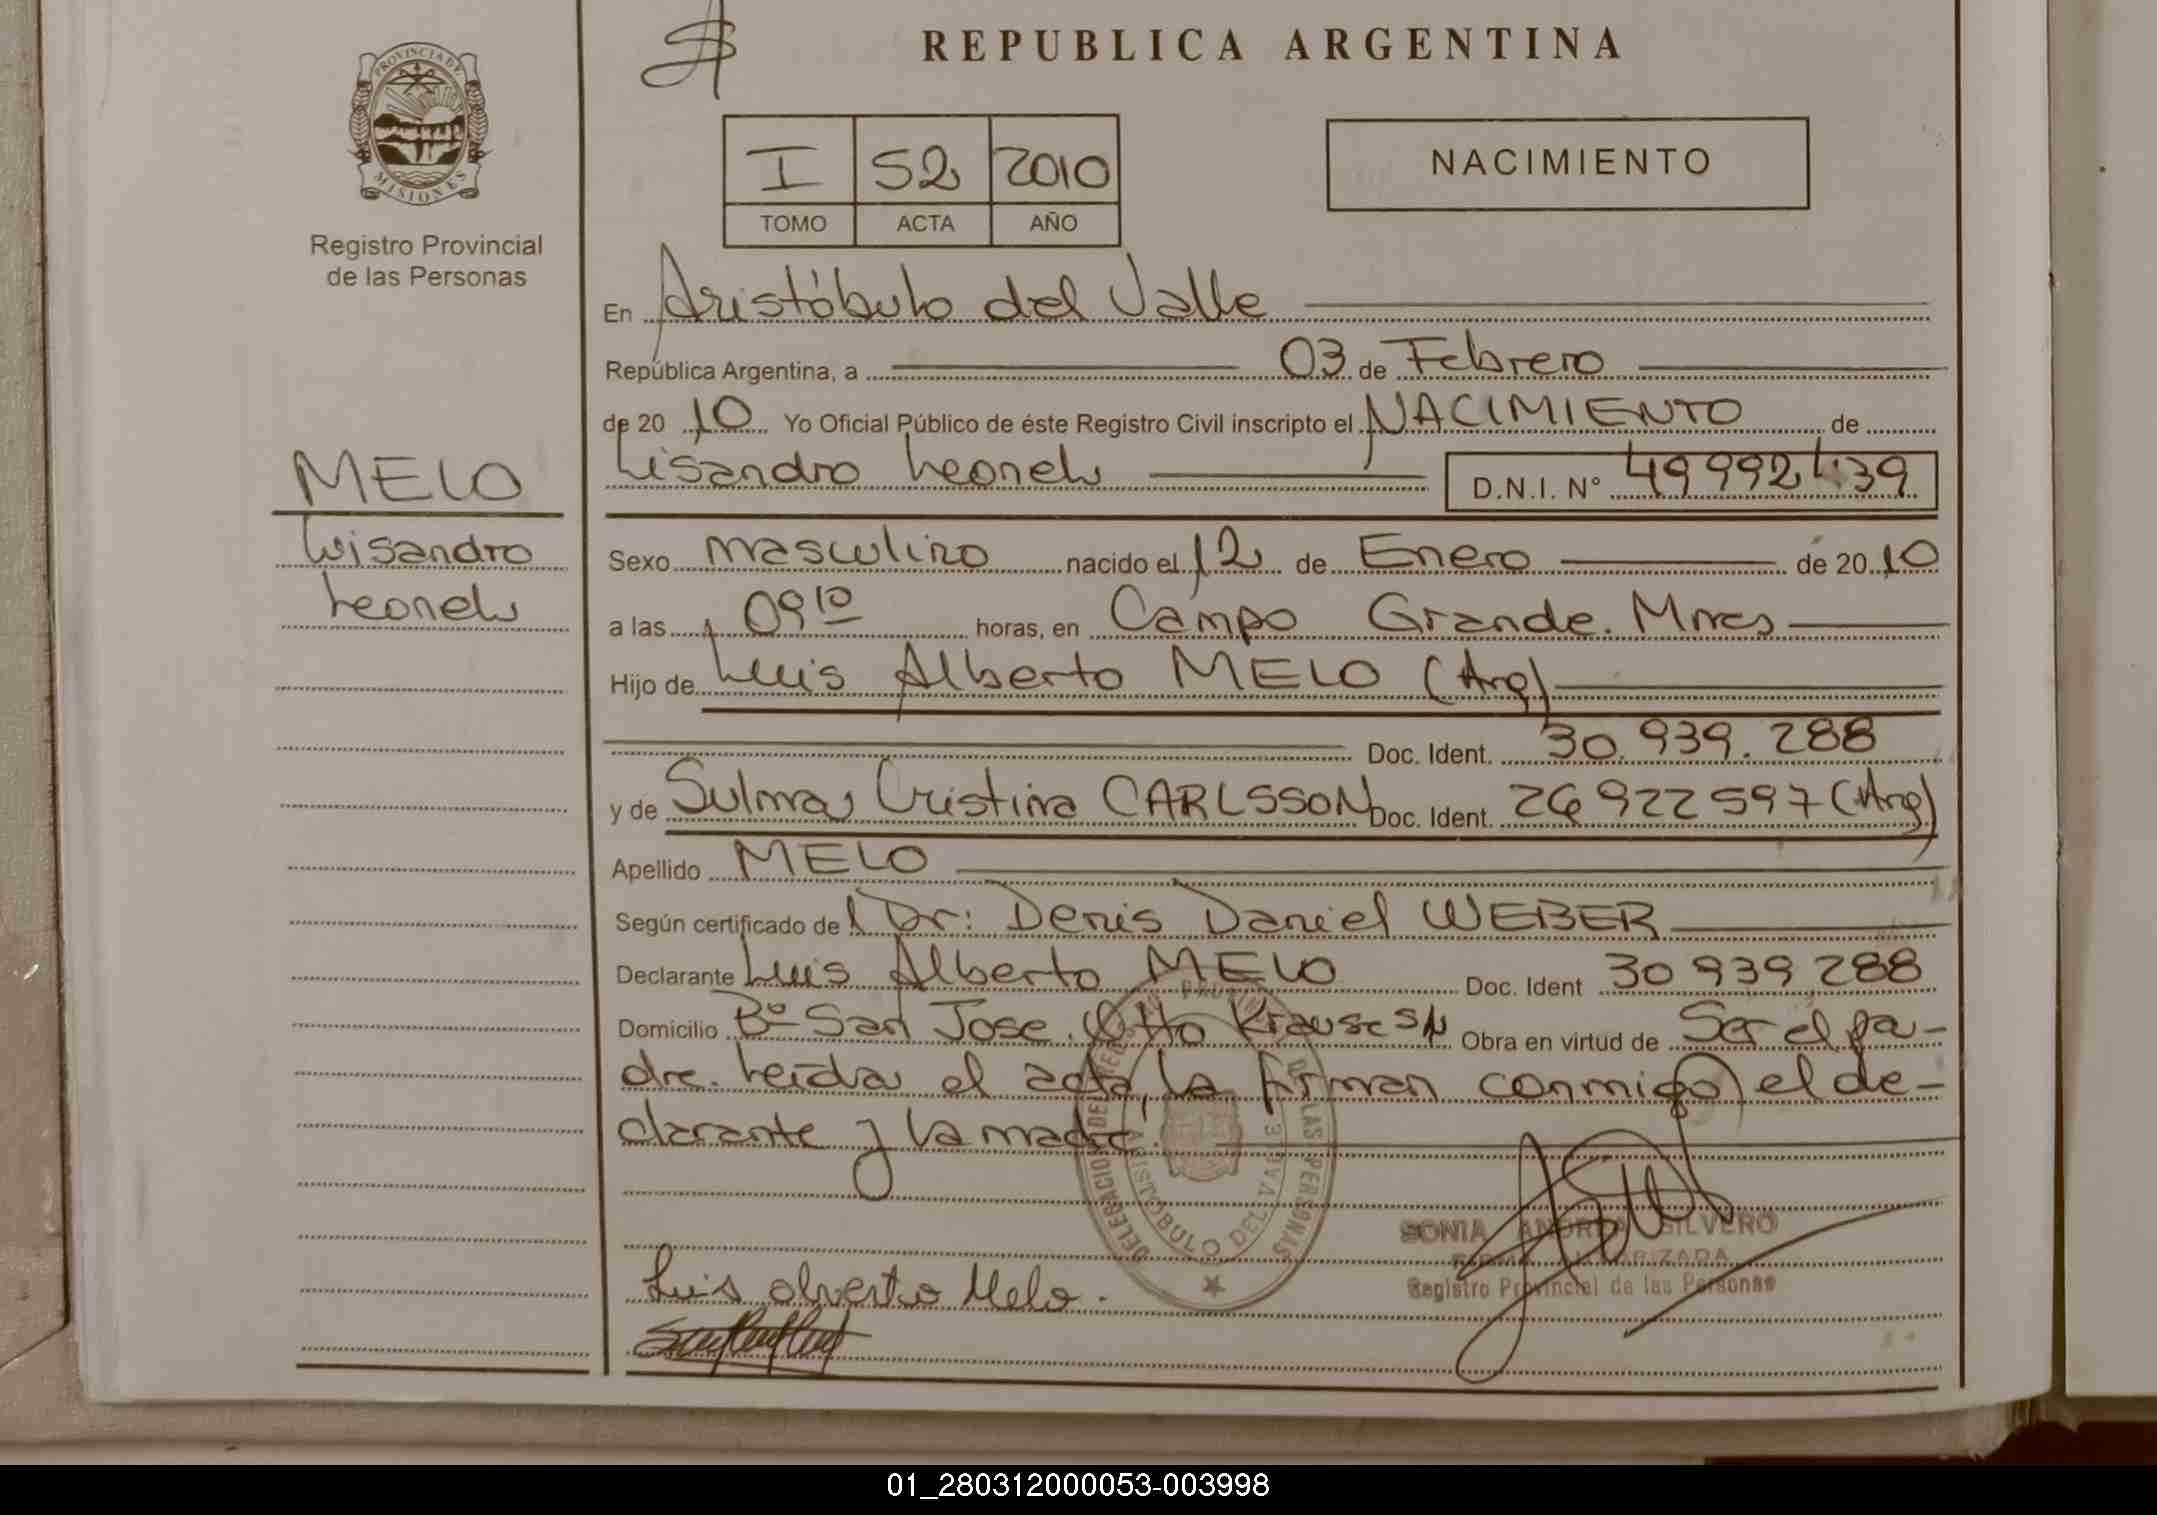 PROVINCIA DE
MISIONES
Registro Provincial
de las Personas
REPUBLICA ARGENTINA
I 52 2010
TOMO ACTA AÑO
NACIMIENTO
En Aristóbulo del Valle
República Argentina, a 03 de Febrero
de 20 10 Yo Oficial Público de éste Registro Civil inscripto el NACIMIENTO de
Lisandro Leonel
D.N.I. Nº 49992439
MELO
Lisandro
Leonel
Sexo masculino nacido el 12 de Enero de 20 10
a las 09 10 horas, en Campo Grande. Mnes
Hijo de Luis Alberto MELO (Arg)
Doc. Ident. 30.939.288
y de Sulma Cristina CARLSSON Doc. Ident. 26922597 (Arg)
Apellido MELO
Según certificado de Dr: Denis Daniel WEBER
Declarante Luis Alberto MELO Doc. Ident 30939288
Domicilio Bº San Jose. Otto Krause S/N Obra en virtud de Ser el pa-
dre. Leida el acta, la firman conmigo el de-
clarante y la madre.
DELEGACION DEL REGISTRO PROVINCIAL DE LAS PERSONAS
ARISTOBULO DEL VALLE
SONIA ANDREA SILVERO
FIRMA AUTORIZADA
Registro Provincial de las Personas
Luis alverto Melo.
01_280312000053-003998